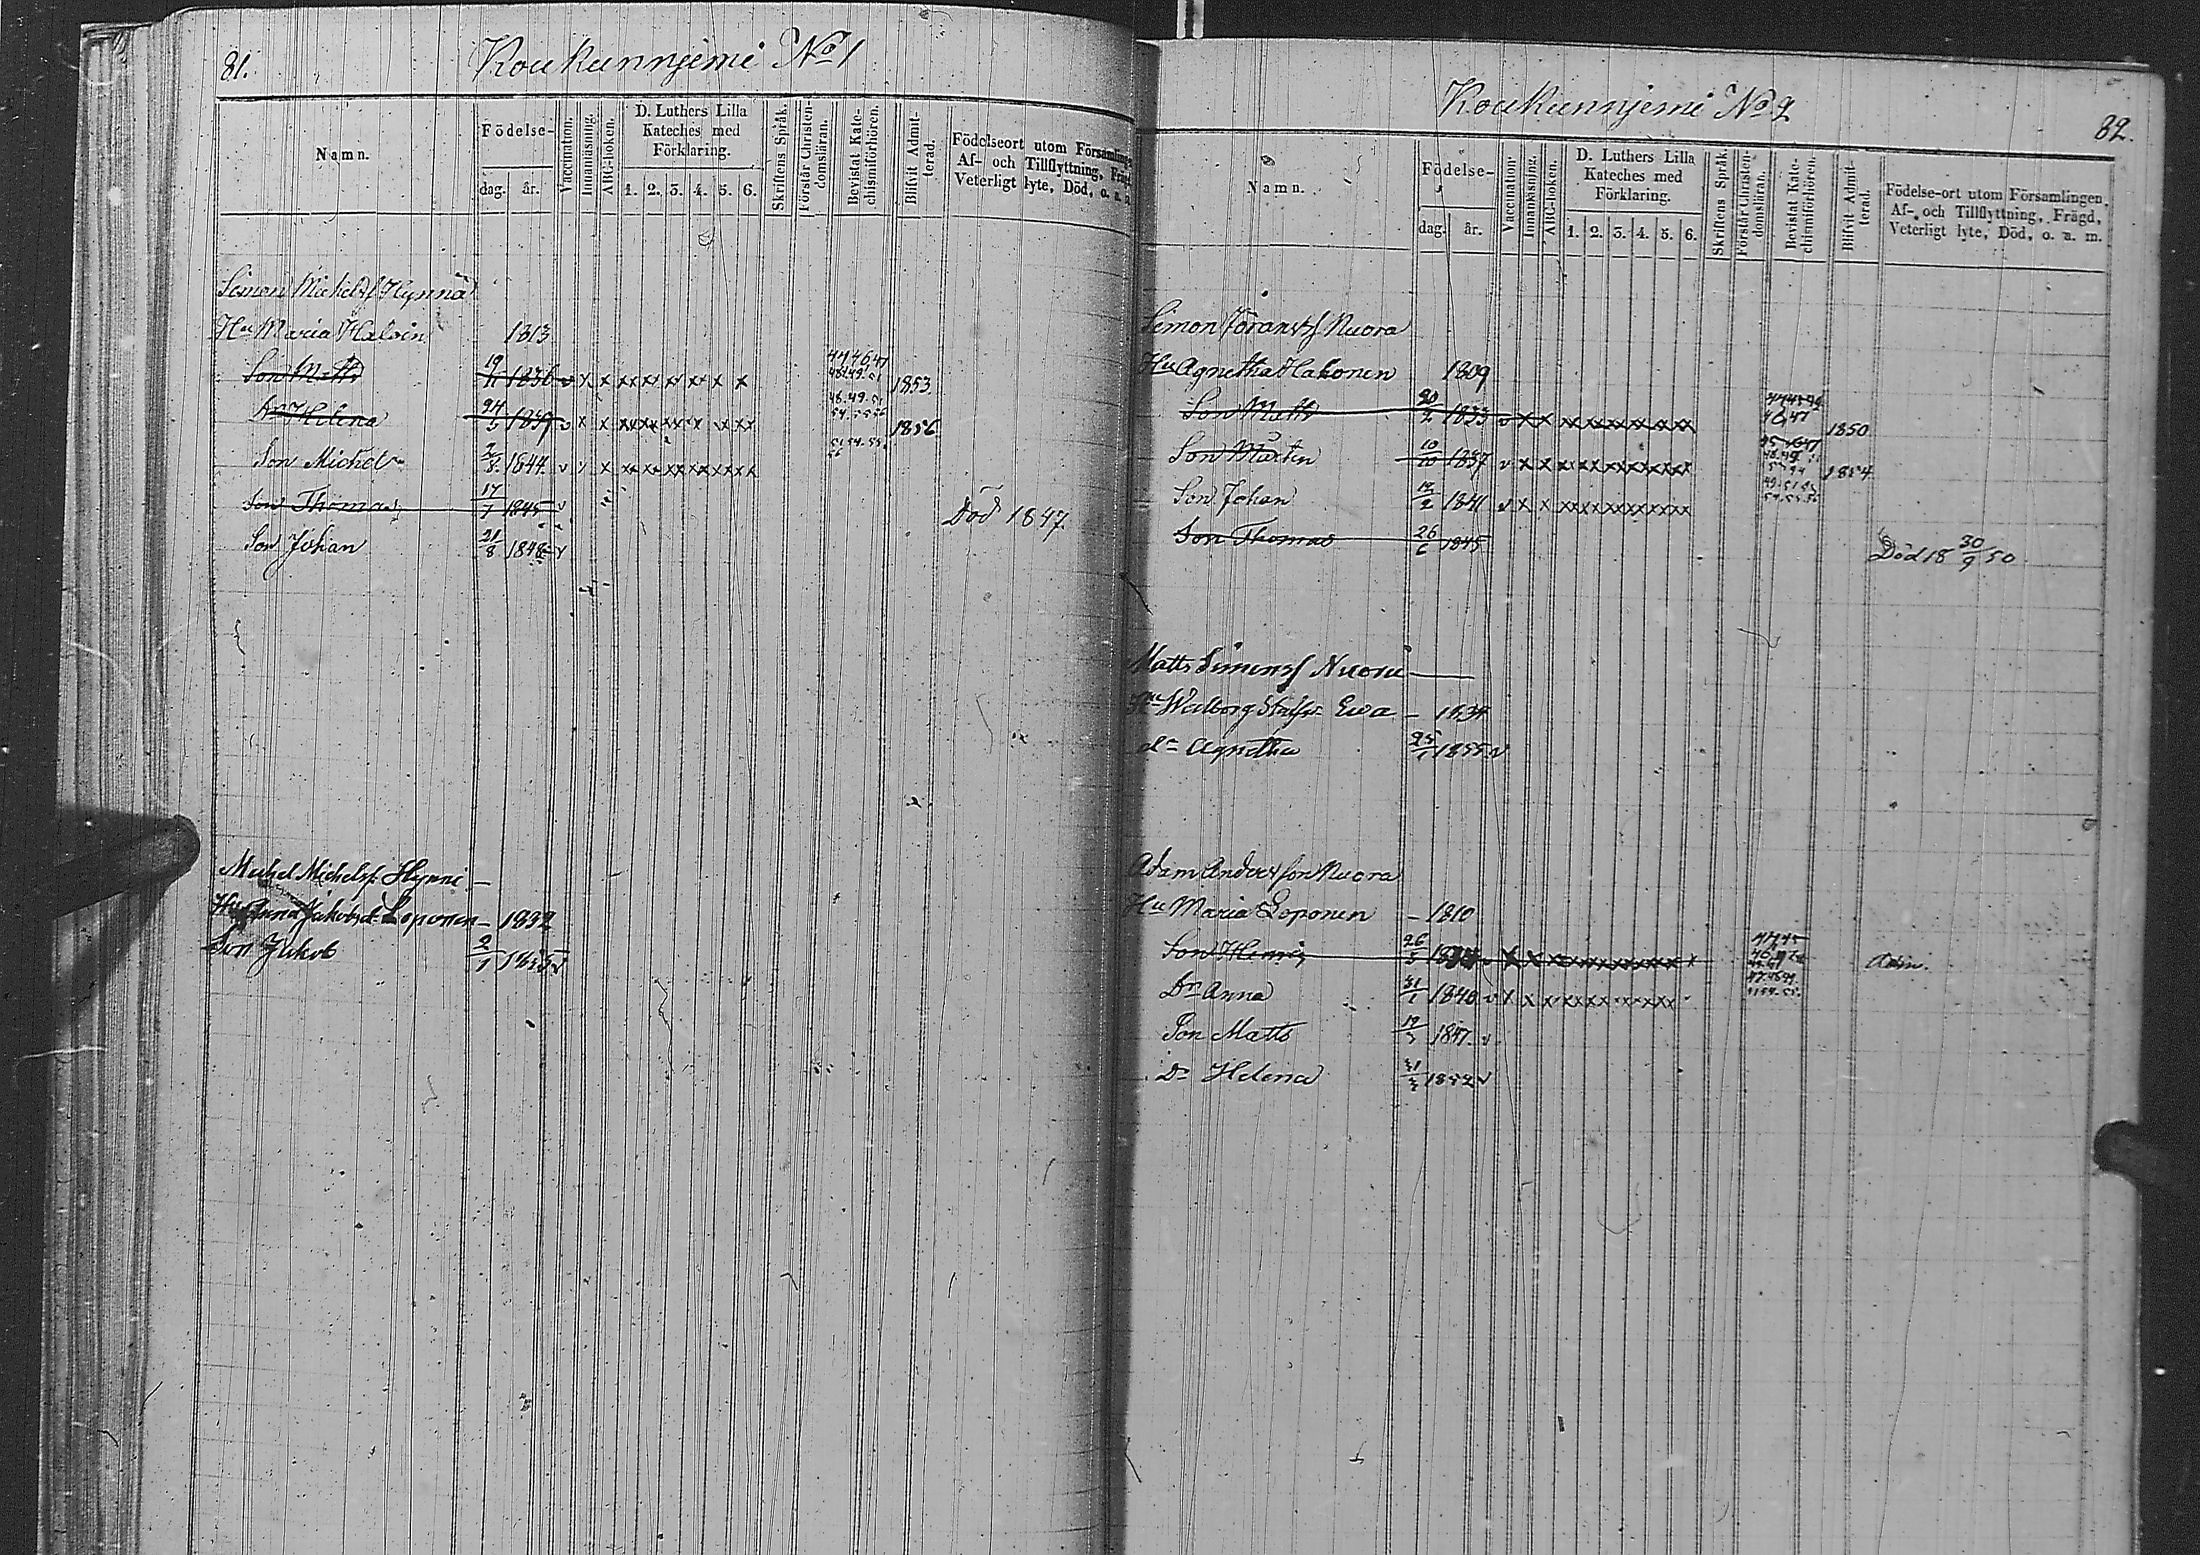 81.
Koukunnjemi No 1
Namn.
Födelse-
dag.
år.
Vaccination.
Innanläsning.
ABC-boken.
D. Luthers Lilla
Kateches med
Förklaring.
1. 2. 3. 4. 5. 6.
Skriftens Språk.
Förstår Christen-
domsläran.
Bevistat Kate-
chismiförhören.
Blifvit Admit-
terad.
Födelseort utom Församlingen
Af- och Tillflyttning, Frägd,
Veterligt lyte, Död, o. a. m.
Simon Michelsf Hynnä
Hu Maria Haloin 1813
Son Matts 1836 v x x xx xx xx xx x x 1853.
Dr Helena 24 1839 v x x 1856
Son Michel 1844 v x x
Son Thomas 17/7 1845 v Död 1847.
Son Johan 21/8 1848 v
Michel Michelsf. Hynni —
Hu Anna Jakobsd. Loponen — 1832
Son Jakob 2/1 1855 v
82.
Koukunnjemi No 2
Namn.
Födelse-
dag.
år.
Vaccination
Innanläsning.
ABC-boken.
D. Luthers Lilla
Kateches med
Förklaring.
1. 2. 3. 4. 5. 6.
Skriftens Språk.
Förstår Christen-
domsläran.
Bevistat Kate-
chismiförhören.
Blifvit Admit-
terad.
Födelse-ort utom Församlingen,
Af-, och Tillflyttning, Frägd,
Veterligt lyte, Död, o. a. m.
Simon Göranssf Nuora
Hu Agnetha Hakonen 1809
Son Matts 20/2 1833 v x x 46,47 1850
Son Mårten 10/10 1837 v x x 1854
Son Johan 1841 v x x
Son Thomas 26/6 1845 Död 18 30/9 50
Matts Simonsf Nuora —
Hu Walborg Ewa — 1834
dr Agnetha 25/1 1855 v
Adam Andersson Nuora
Hu Maria Loponen — 1810
Son Henric 26/5 v x x Adm.
Dr Anna 31/1 1840 v x x x
Son Matts 1847 v
Dr Helena 31/3 1852 v